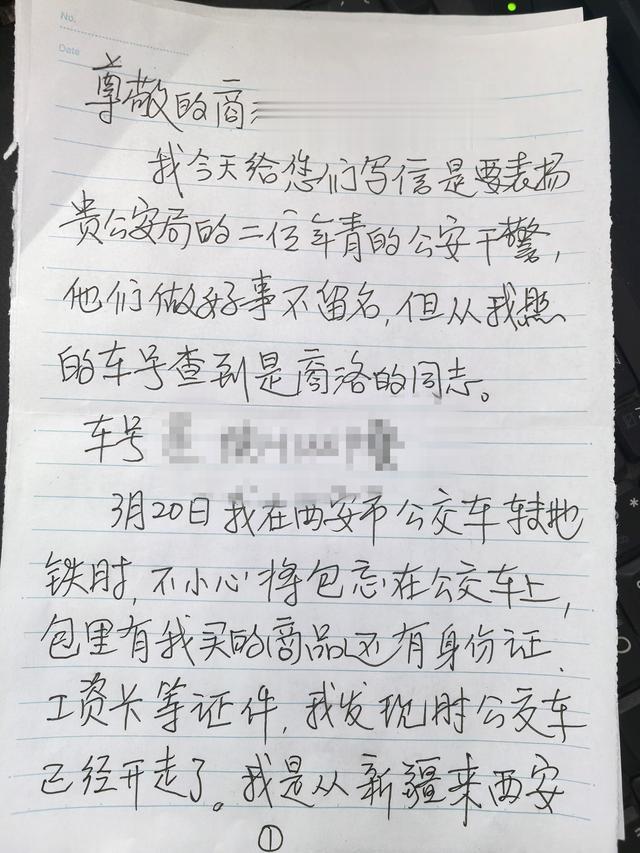 No.
Date
尊敬的商
我今天给您们写信是要表扬
贵公安局的二位年青的公安干警，
他们做好事不留名，但从我照
的车号查到是商洛的同志。
车号
3月20日我在西安市公交车转地
铁时，不小心将包忘在公交车上，
包里有我买的商品还有身份证、
工资卡等证件，我发现时公交车
已经开走了。我是从新疆来西安
①